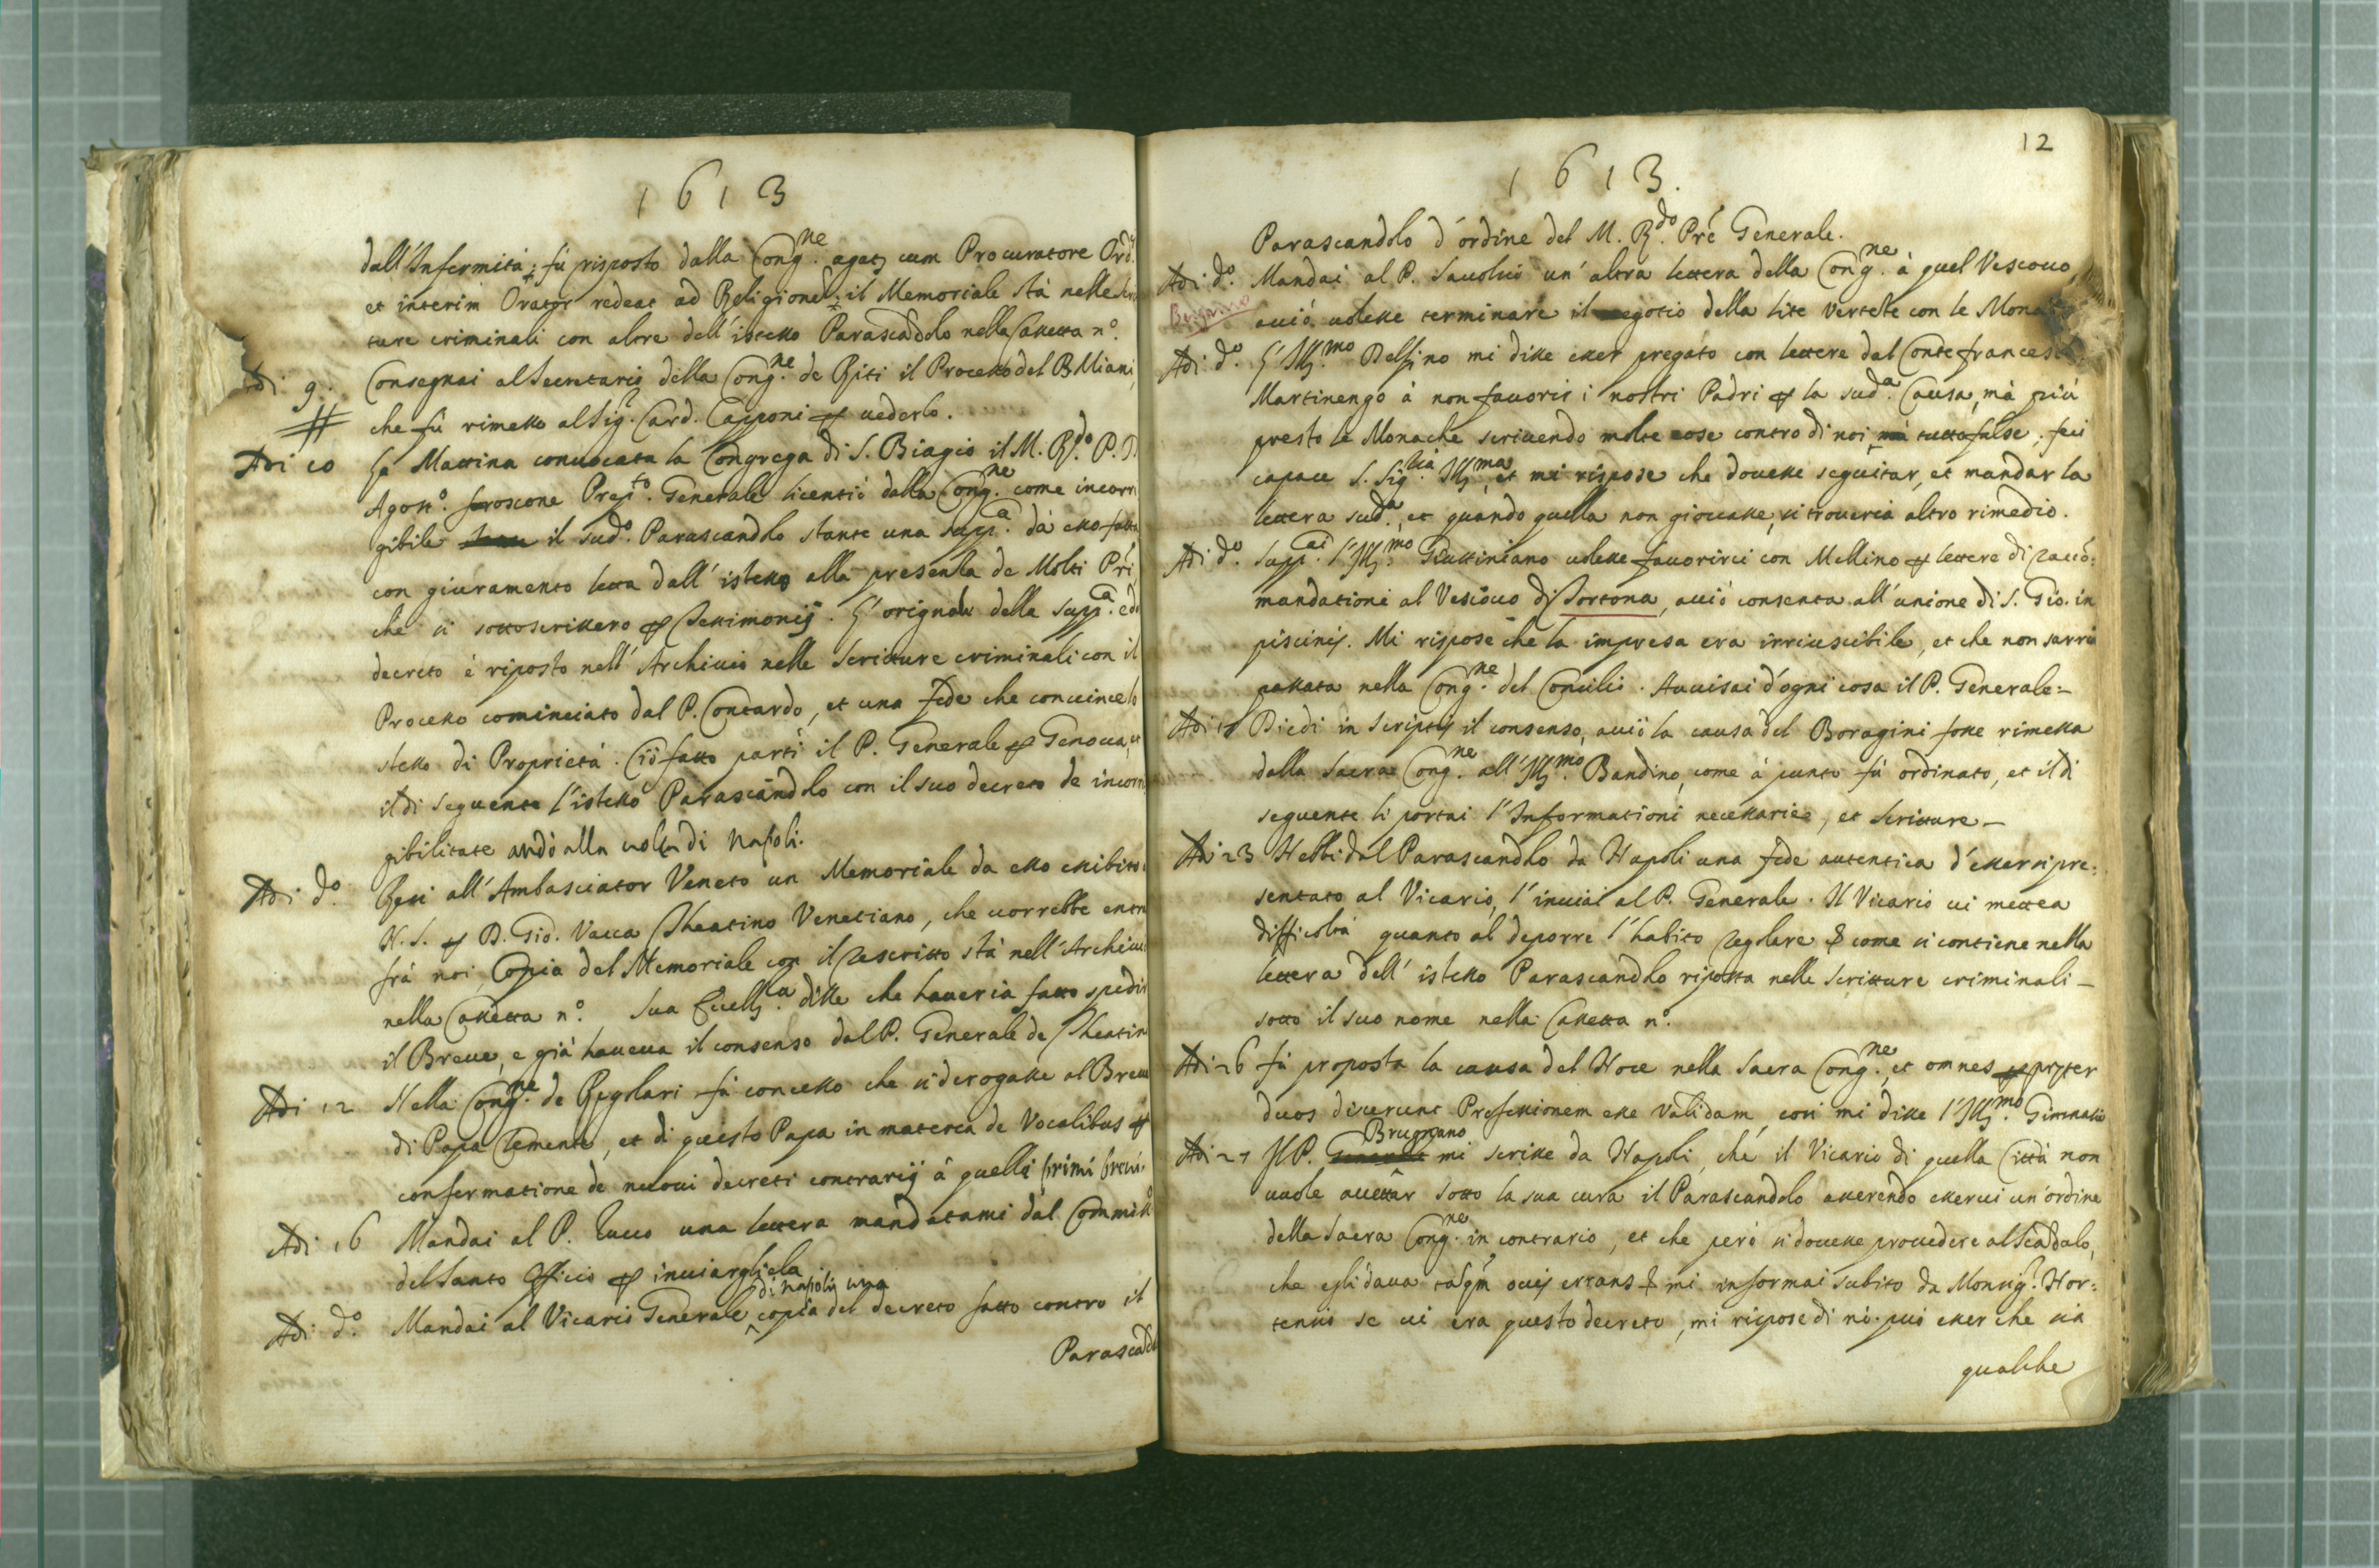 1613
dall'Infermità; fù risposto dalla Cong.ne agat cum Procuratore Ord.
et interim Orator redeat ad Religionem; il Memoriale stà nelle scrit
ture criminali con altre dell'istesso Parascādolo nella Cassetta n.o
Adi 9. Consegnai al Secretario della Cong.ne de Riti il Processo del B. Miani,
# che fù rimesso al Sig.r Card. Capponi per vederlo.
Adi 10 La Mattina convocata la Congrega di S. Biagio il M. R.do P. D.
Agost.o froscone Prep.to Generale licentiò dalla Cong.ne come incorri
gibile il sud.o Parascandolo stante una supp.ca da esso fatta
con giuramento letta dall'istesso alla presenza de Molti Pri,
che si sottoscrissero per Testimonij. L'orignale della supp.ca e d
decreto è riposto nell'Archivio nelle Scritture criminali con il
Processo cominciato dal P. Contardo, et una fede che convince lo
stesso di Proprietà. Ciò fatto partì il P. Generale per Genova, et
il dì seguente l'istesso Parascandolo con il suo decreto de incorri
gibilitate andò alla volta di Napoli.
Adi d.o Resi all'Ambasciator Veneto un Memoriale da esso exibito
N. S. per D. Gio. Vacca Theatino Venetiano, che vorrebbe entr
frà noi, Copia del Memoriale con il rescritto stà nell'Archivio
nella Cassetta n.o Sua Ecell.za disse che haveria fatto spedir
il Breve, e già haveva il consenso dal P. Generale de Theatin
Adi 12 Nella Cong.ne de Regolari fù concesso che si derogasse al Breve
di Papa Clemente, et di questo Papa in materia de Vocalibus per
confermatione de nuovi decreti contrarij à quelli primi brevi.
Adi 16 Mandai al P. Zucco una lettera mandatami dal Commiss.o
del Santo Officio per inviargliela
di Napoli una
Adi d.o Mandai al Vicario Generale copia del decreto fatto contro il
Parascād
12
1613.
Parascandolo d'ordine del M. R.do Prè Generale.
Adi d.o Mandai al P. Savolio un'altra lettera della Cong.ne à quel Vescovo,
Bergamo acciò volesse terminare il negotio della lite vertete con le Monache
Adi d.o L'Ill.mo Delfino mi disse esser pregato con lettere dal Conte francesco
Martinengo à non favorir i nostri Padri per la sud.a Causa, mà più
presto le Monache scrivendo molte cose contro di noi, mà tutte false, feci
capace S. Sig.ria Ill.ma, et mi rispose che dovesse seguitar, et mandar la
lettera sud.a, et quando quella non giovasse, si troveria altro rimedio.
Adi d.o Supp.ai l'Ill.mo Giustiniano volesse favorirci con Mellino per lettere di racco:
mandationi al Vescovo di Tortona, acciò consenta all'unione di S. Gio. in
piscinis. Mi rispose che la impresa era irriuscibile, et che non sarria
passata nella Cong.ne del Concilio. Avvisai d'ogni cosa il P. Generale.-
Adi 18 Diedi in scriptis il consenso, acciò la causa del Boragini fosse rimessa
dalla Sacra Cong.ne all'Ill.mo Bandino, come à punto fù ordinato, et il dì
seguente li portai l'Informationi necessarie, et scritture -
Adi 23 Hebbi dal Parascandolo da Napoli una fede autentica d'essersi pre:
sentato al Vicario, l'inviai al P. Generale. Il Vicario vi mettea
difficoltà quanto al deporre l'habito regolare & come si contiene nella
lettera dell'istesso Parascandolo riposta nelle scritture criminali -
sotto il suo nome nella Cassetta n.o
Adi 26 fù proposta la causa del Noce nella Sacra Cong.ne, et omnes prȩter
duos dixerunt Professionem esse validam, così mi disse l'Ill.mo Gimnasio
Brugnano
Adi 27 Il P. Generale mi scrisse da Napoli, ché il Vicario di quella Città non
vuole accettar sotto la sua cura il Parascandolo asserendo esservi un'ordine
della Sacra Cong.ne in contrario, et che però si dovesse provedere al Scādalo,
che egli dava tāqm ovis errans & mi informai subito da Monsig.r Hor:
tensio se vi era questo decreto, mi rispose di nò. può esser che sia
qualche